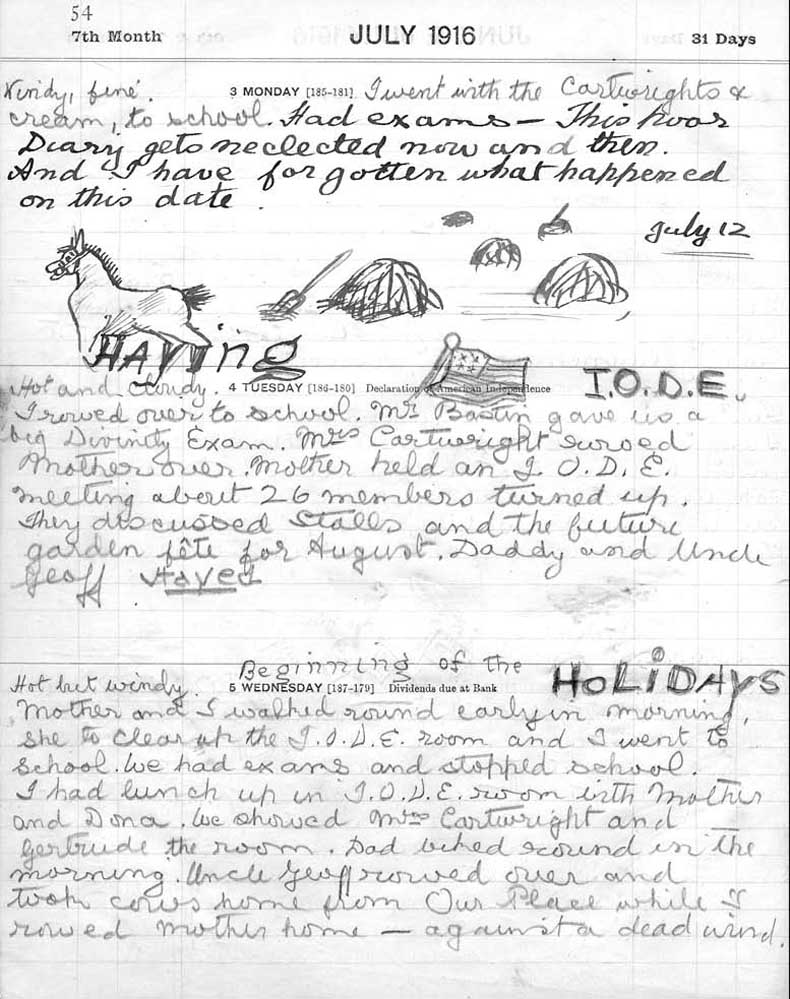 54
7th Month JULY 1916 31 Days
Windy, fine. 3 MONDAY [185-181] I went with the Cartwrights &
cream, to school. Had exams — This poor
Diary gets neglected now and then.
And I have forgotten what happened
on this date.
July 12
HAYing
Hot and Cloudy. 4 TUESDAY [186-180] Declaration of American Independence I.O.D.E.
I rowed over to school. Mr Bastin gave us a
big Divinity Exam. Mrs Cartwright rowed
Mother over. Mother held an I.O.D.E.
meeting about 26 members turned up.
They discussed Stalls and the future
garden fête for August. Daddy and Uncle
Geoff Hayed
Beginning of the HOLiDAYS
Hot but windy. 5 WEDNESDAY [187-179] Dividends due at Bank
Mother and I walked round early in morning,
she to clear up the I.O.D.E. room and I went to
school. We had exams and stopped school.
I had lunch up in I.O.D.E. room with Mother
and Dona. We showed Mrs Cartwright and
Gertrude the room. Dad biked round in the
morning. Uncle Geoff rowed over and
took cows home from Our Place while I
rowed Mother home — against a dead wind.